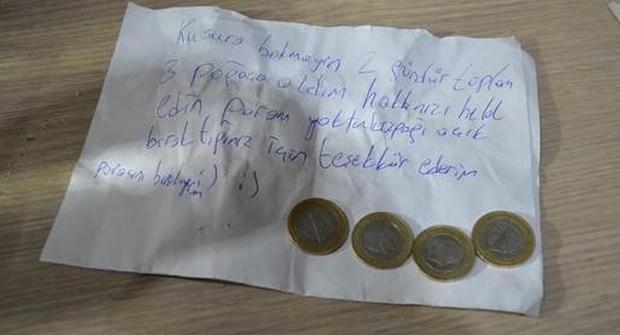 Kusura bakmayın 2 gündür toplam
3 poğaca aldım hakkınızı helal
edin param yoktu kapağı açık
bıraktığınız için teşekkür ederim
parasını bırakıyorum :) :)